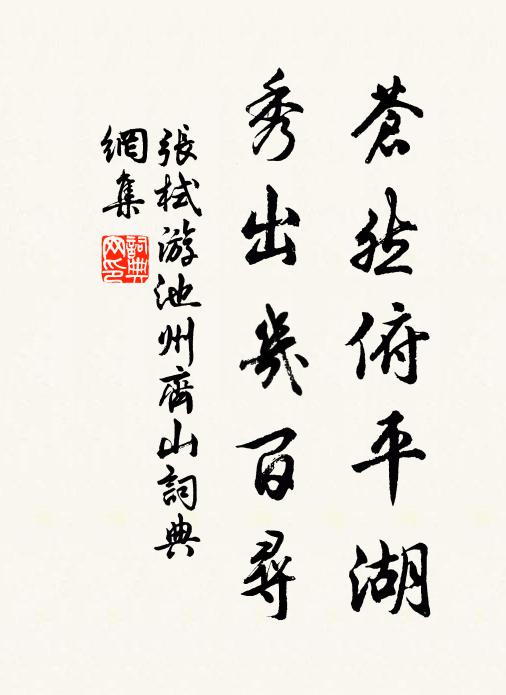 蒼然俯平湖
秀出幾百尋
張栻游池州齊山詞典
網集
詞典
网印